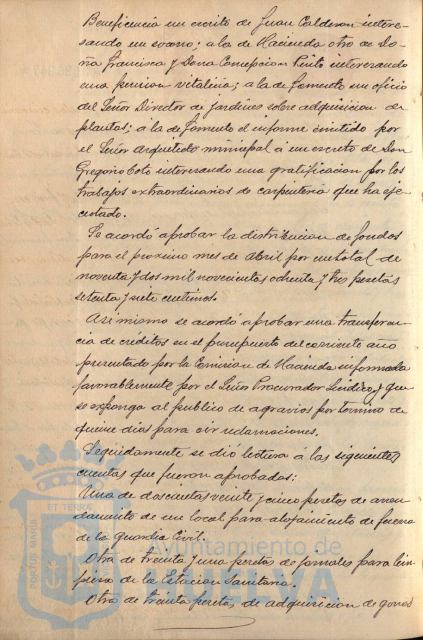 Beneficencia un escrito de Juan Calderon intere-
sando un socorro; a la de Hacienda otro de Do-
ña Francisca y Dona Concepcion Pinto interesando
una pension vitalicia; a la de Fomento un oficio
del Señor Director de Jardines sobre adquisicion de
plantas; á la de Fomento el informe emitido por
el Señor Arquitecto municipal á un escrito de Don
Gregorio Coto interesando una gratificacion por los
trabajos extraordinarios de carpinteria que ha eje-
cutado.
Se acordó aprobar la distribucion de fondos
para el proximo mes de Abril por un total de
noventa y dos mil novecientas ochenta y tres pesetas
setenta y siete centimos.
Asi mismo se acordó aprobar una transferen-
cia de créditos en el presupuesto del corriente año
presentado por la Comision de Hacienda informada
favorablemente por el Señor Procurador Sindico, y que
se exponga al publico de agravios por termino de
quince dias para oir reclamaciones.
Seguidamente se dió lectura á las siguientes
cuentas que fueron aprobadas:
Una de doscientas veinte y cinco pesetas de arren-
damiento de un local para alojamiento de fuerza
de la Guardia Civil.
Otra de treinta y una pesetas de jornales para lim-
pieza de la Estacion Sanitaria.
Otra de treinta pesetas de adquisicion de
PORTUS MARIS
ET TERRE
Ayuntamiento de